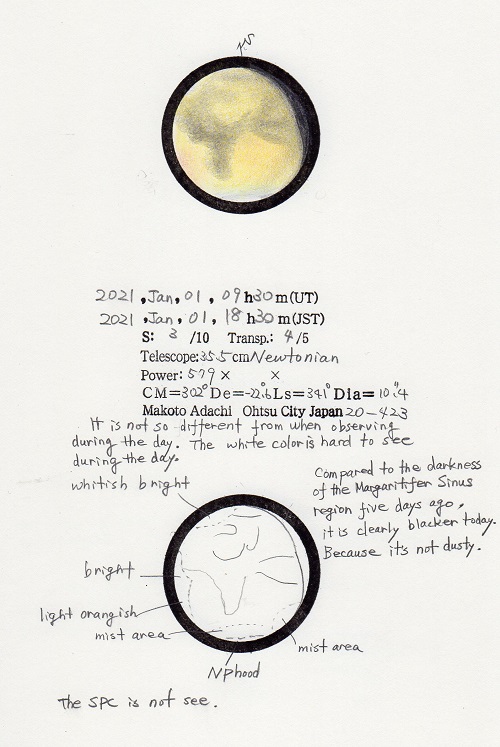 2021, Jan, 01, 09 h 30 m (UT)
2021, Jan, 01, 18 h 30 m (JST)
S: 3 /10 Transp.: 4/5
Telescope: 35.5 cm Newtonian
Power: 579 × ×
CM=302° De=-22.6° Ls=341° Dia=10".4
Makoto Adachi Ohtsu City Japan 20-423
It is not so different from when observing
during the day. The white color is hard to see
during the day.
whitish bright
Compared to the darkness
of the Margaritifer Sinus
region five days ago,
it is clearly blacker today.
Because it's not dusty.
bright
light orangish
mist area
mist area
NPhood
The SPC is not see.